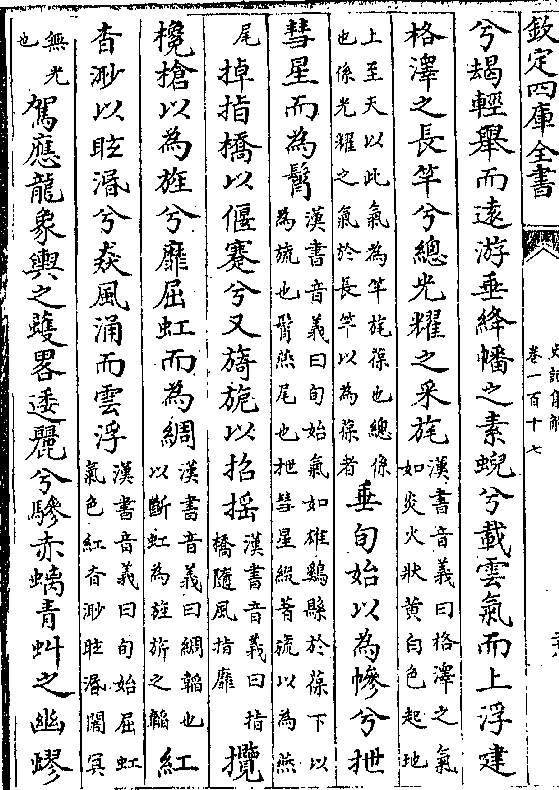 欽定四庫全書
史記集解
卷一百十七
兮朅輕舉而遠游垂絳幡之素蜺兮載雲氣而上浮建
格澤之長竿兮總光耀之采旄漢書音義曰格澤之氣如炎火狀黄白色起地
上至天以此氣為竿旄葆也總係也係光耀之氣於長竿以為葆者垂旬始以為幓兮抴
彗星而為髾漢書音義曰旬始氣如雄鷄縣於葆下以為旒也髾燕尾也抴彗星綴著旒以為燕
尾掉指橋以偃蹇兮又旖旎以招揺漢書音義曰指橋隨風指靡攬
欃槍以為旌兮靡屈虹而為綢漢書音義曰綢韜也以斷虹為旌旂之韜紅
杳渺以眩湣兮猋風涌而雲浮漢書音義曰旬始屈虹氣色紅杳渺眩湣闇冥
無光也駕應龍象輿之蠖畧逶麗兮驂赤螭青虯之幽蟉